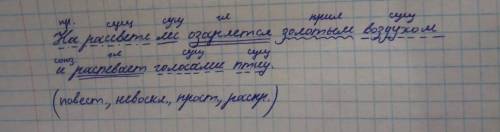 пр. сущ сущ гл прил сущ
На рассвете лес озаряется золотым воздухом
союз гл сущ сущ
и распевает голосами птиц.
(повест., невоскл., прост., распр.)